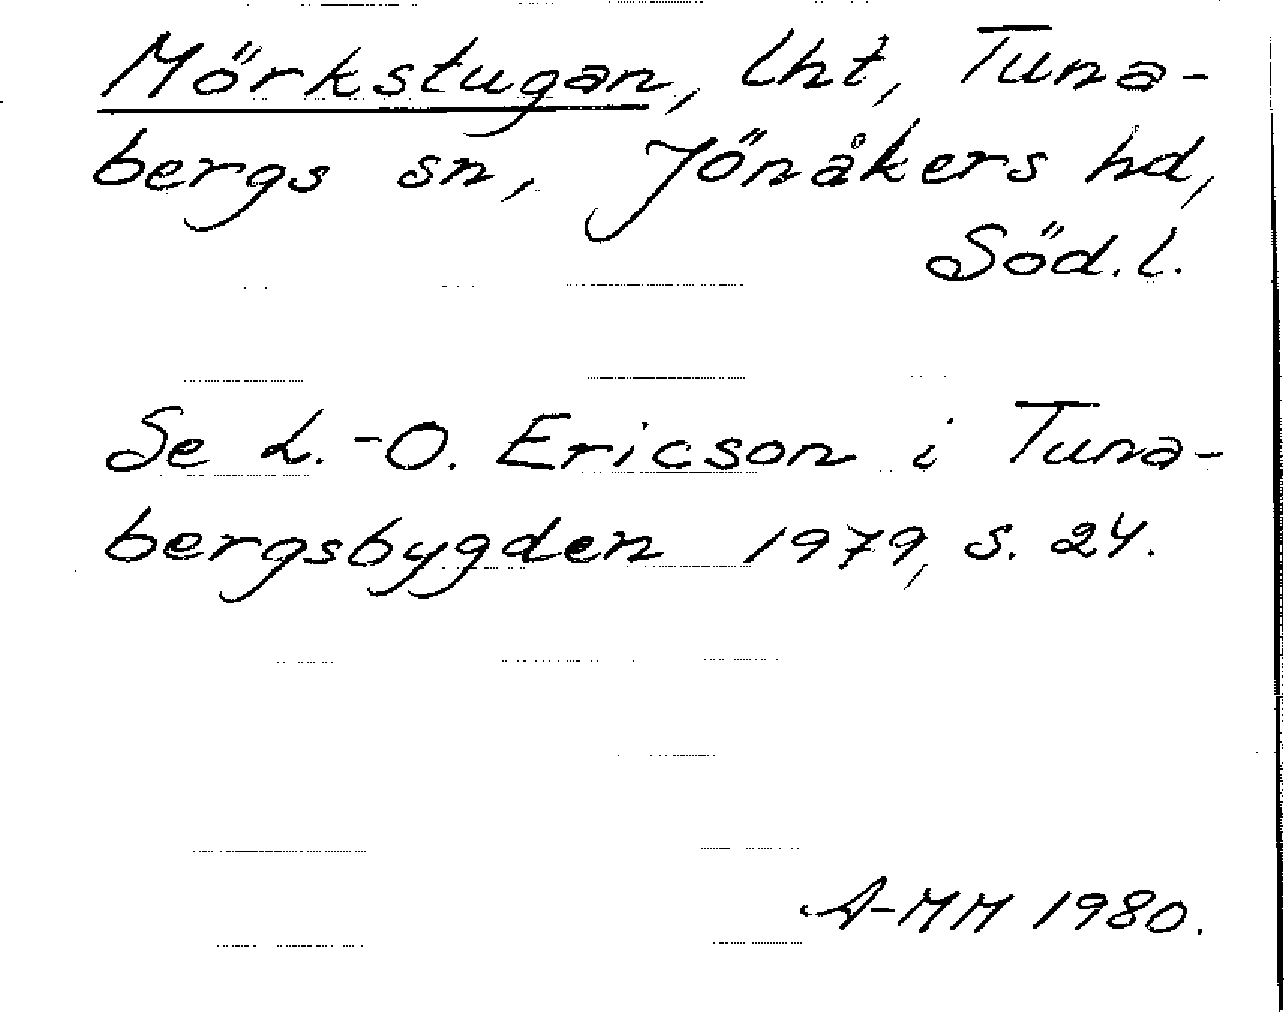 Mörkstugan, lht, Tuna-
bergs sn, Jönåkers hd,
Söd.l.
Se L.-O. Ericson i Tuna-
bergsbygden 1979, s. 24.
A-MM 1980.